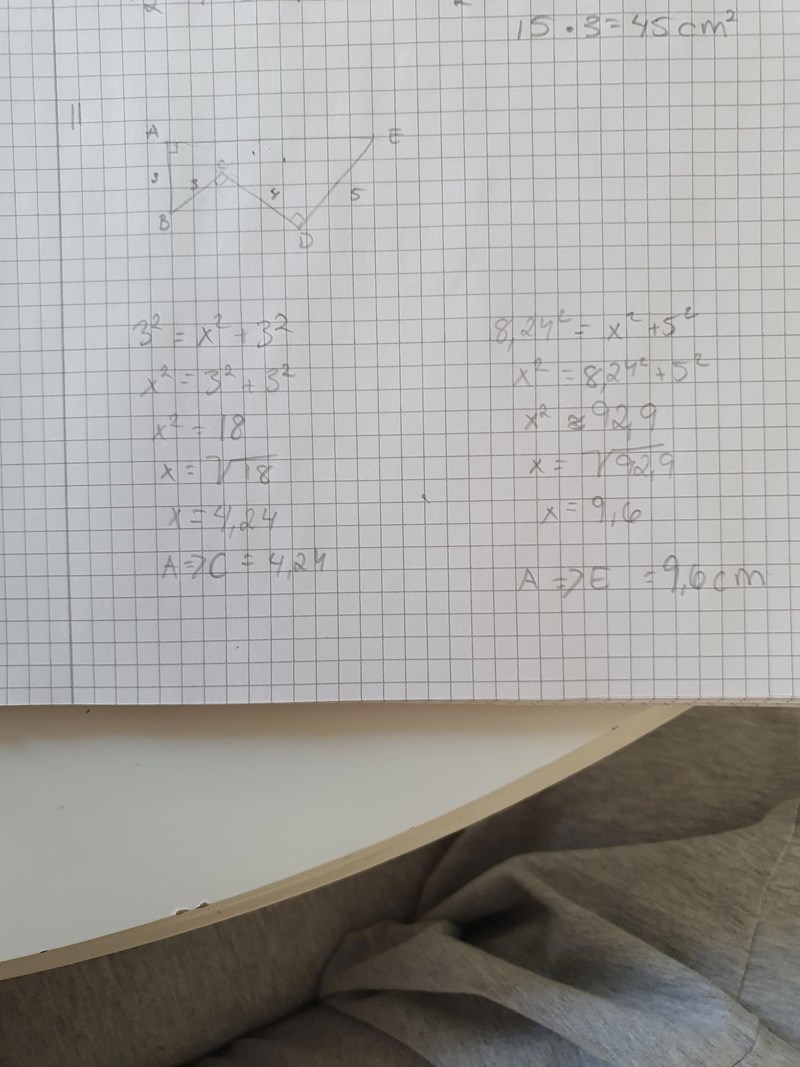 15 · 3 = 45 cm²
11
A
E
3
C
3
4
5
B
D
3² = x² + 3²
x² = 3² + 3²
x² = 18
x = √18
x = 4,24
A => C = 4,24
8,24² = x² + 5²
x² = 8,24² + 5²
x² ≈ 92,9
x = √92,9
x = 9,6
A => E = 9,6 cm